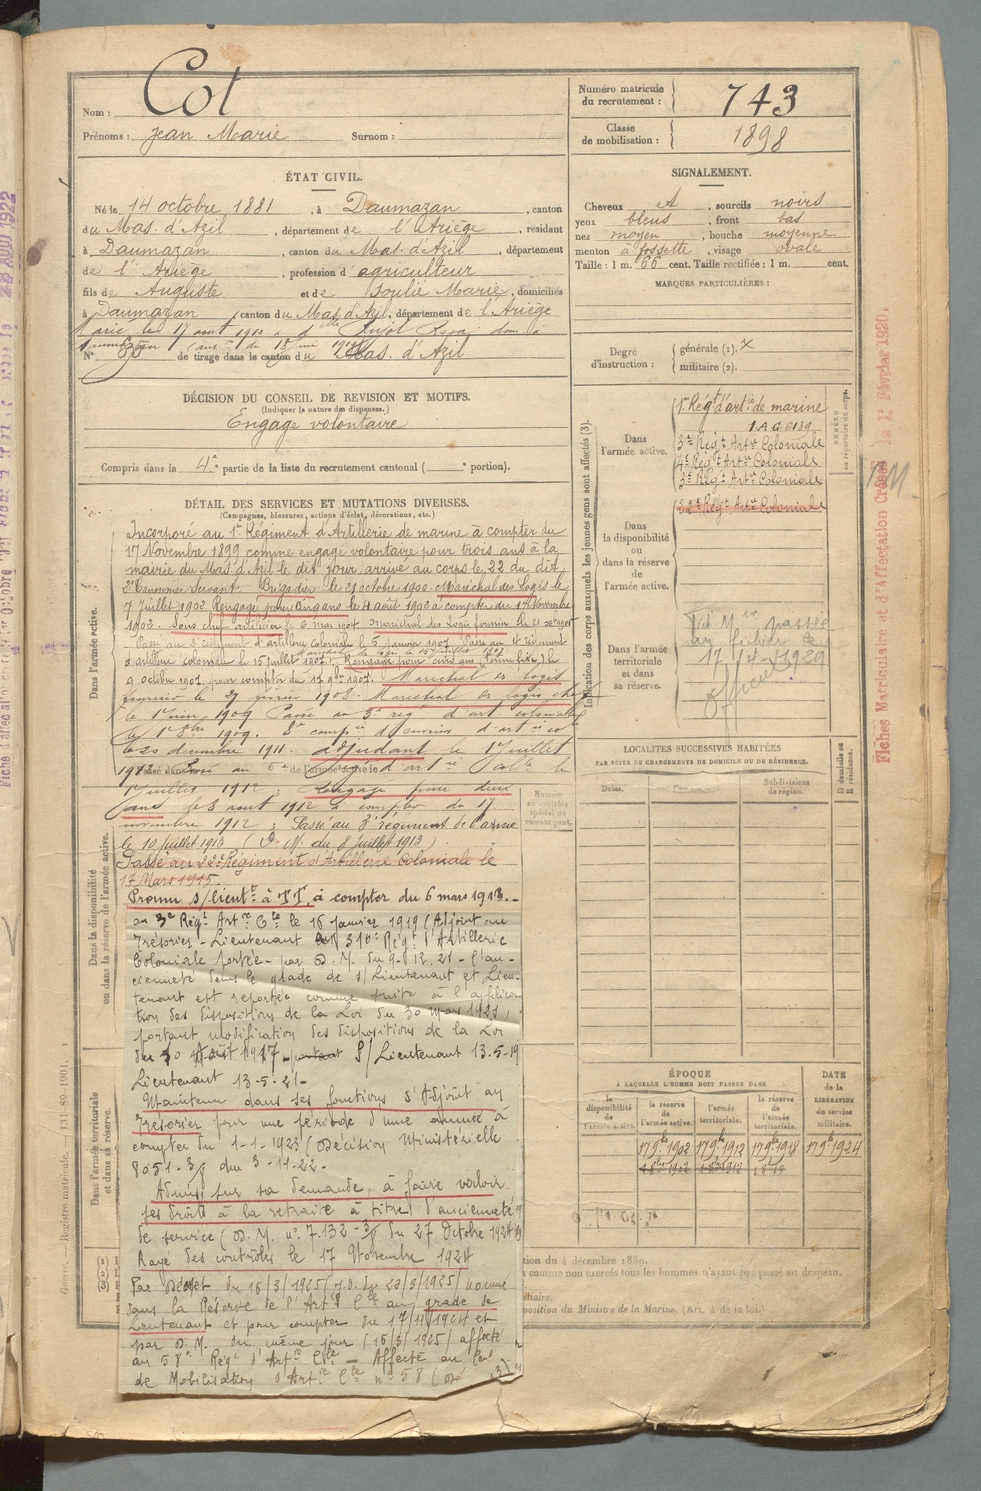 Nom : Cot
Prénoms : Jean Marie Surnom :
Numéro matricule du recrutement : 743
Classe de mobilisation : 1898
ÉTAT CIVIL.
Né le 14 octobre 1881, à Daumazan, canton
du Mas. d'Azil, département de l'Ariège, résidant
à Daumazan, canton du Mas. d'Azil, département
de l'Ariège, profession d'agriculteur
fils de Auguste et de Soulié Marie, domiciliés
à Daumazan, canton du Mas. d'Azil, département de l'Ariège
Marié le 17 aout 1913 à
N° de tirage dans le canton du Mas. d'Azil
SIGNALEMENT.
Cheveux, sourcils noirs
yeux bleus, front bas
nez moyen, bouche moyenne
menton à fossette, visage ovale
Taille : 1 m. 66 cent. Taille rectifiée : 1 m. cent.
MARQUES PARTICULIÈRES :
Degré d'instruction : générale (1). X
militaire (2).
DÉCISION DU CONSEIL DE REVISION ET MOTIFS.
(Indiquer la nature des dispenses.)
Engagé volontaire
Compris dans la 4e partie de la liste du recrutement cantonal ( e portion).
DÉTAIL DES SERVICES ET MUTATIONS DIVERSES.
(Campagnes, blessures, actions d'éclat, décorations, etc.)
Dans l'armée active.
Incorporé au 1er Régiment d'Artillerie de marine à compter du
17 Novembre 1899 comme engagé volontaire pour trois ans à la
mairie du Mas d'Azil le dit jour arrivé au corps le 22 du dit
2e Canonnier Servant. Brigadier le 21 octobre 1900. Maréchal des Logis le
7 Juillet 1902. Rengagé pour cinq ans le 4 août 1902 à compter du 17 Novembre
1902. Sous chef artificier le 6 mai 1904 Maréchal des Logis fourrier le
Passé au 3e régiment d'artillerie coloniale le 5 janvier 1907 Passé au 4e régiment
d'artillerie coloniale le 15 juillet 1907. Rengagé pour cinq ans le
9 octobre 1907 pour compter du 17 9bre 1907. Maréchal des logis
fourrier le 27 février 1908. Maréchal des logis chef
le 1er juin 1909 Passé au 3e rég d'art coloniale
le 1909.
le 20 décembre 1911. adjudant le 1er juillet
1912
1er juillet 1912. Rengagé pour deux
ans le 3 aout 1912 à compter du 17
novembre 1912. Passé au 3e régiment de l'arme
le 10 juillet 1913 (D. M. du 8 juillet 1913)
Passé au 22e Régiment d'Artillerie Coloniale le
17 Mars 1915.
Promu s/lieutt à TT, à compter du 6 mars 1913.
au 3e Régt Artie Cle le 16 janvier 1919 (Adjoint au
Trésorier - Lieutenant 310e Régt d'Artillerie
Coloniale portée - par D. M. du 9-12.21 - l'an-
cienneté dans le grade de s/Lieutenant et Lieu-
tenant est reportée comme suite à l'applica
tion des dispositions de la Loi du 30 mars 1921,
portant modification des dispositions de la Loi
du 10 Août 1917 - S/Lieutenant 13.5-19
Lieutenant 13-5-21-
Maintenu dans ses fonctions d'Adjoint au
Trésorier pour une période d'une année à
compter du 1-1-1923 (Décision Ministérielle
8051-3/8 du 3-11-22-
Admis, sur sa demande, à faire valoir
ses droits à la retraite à titre d'ancienneté
de service (D. M. n° 7.132-3/8 du 27 Octobre 1924
Rayé des contrôles le 17 Novembre 1924
Par Décret du 16/3/1925 (J.O. du 22/3/1925) nommé
dans la Réserve de l'Artie Cle au grade de
Lieutenant et pour compter du 17/11/1924 et
par D. M. du même jour (16/3/1925) affecté
au 58e Régt d'Artie Cle - Affecté au Cent
de Mobilisation d'Artie Cle n° 58
Dans la disponibilité ou dans la réserve de l'armée active.
Dans l'armée territoriale et dans sa réserve.
Indication des corps auxquels les jeunes gens sont affectés (3).
NUMÉRO au répertoire du corps.
Dans l'armée active.
1er Régt d'artie de marine
3e Régt Artie Coloniale
4e Régt Artie Coloniale
3e Régt Artie Coloniale
22e Régt Artie Coloniale
Dans la disponibilité ou dans la réserve de l'armée active.
Dans l'armée territoriale et dans sa réserve.
passée
au fichier
17/4-1929
LOCALITÉS SUCCESSIVES HABITÉES
PAR SUITE DE CHANGEMENTS DE DOMICILE OU DE RÉSIDENCE.
Dates.
Subdivisions de région.
D domicile ou R résidence.
ÉPOQUE
À LAQUELLE L'HOMME DOIT PASSER DANS
la disponibilité de l'armée active.
la réserve de l'armée active.
l'armée territoriale.
la réserve de l'armée territoriale.
DATE de la LIBÉRATION du service militaire.
17 9bre 1902 17 9bre 1912 17 9bre 1918 17 9bre 1924
du 4 décembre 1889.
comme non exercés tous les hommes n'ayant pas passé au drapeau.
position du Ministre de la Marine. (Art. 4 de la loi.)
Guerre. — Registre matricule. — 131-89-1901.
Fiches Matriculaire et d'Affectation Créées le 1er Février 1920.